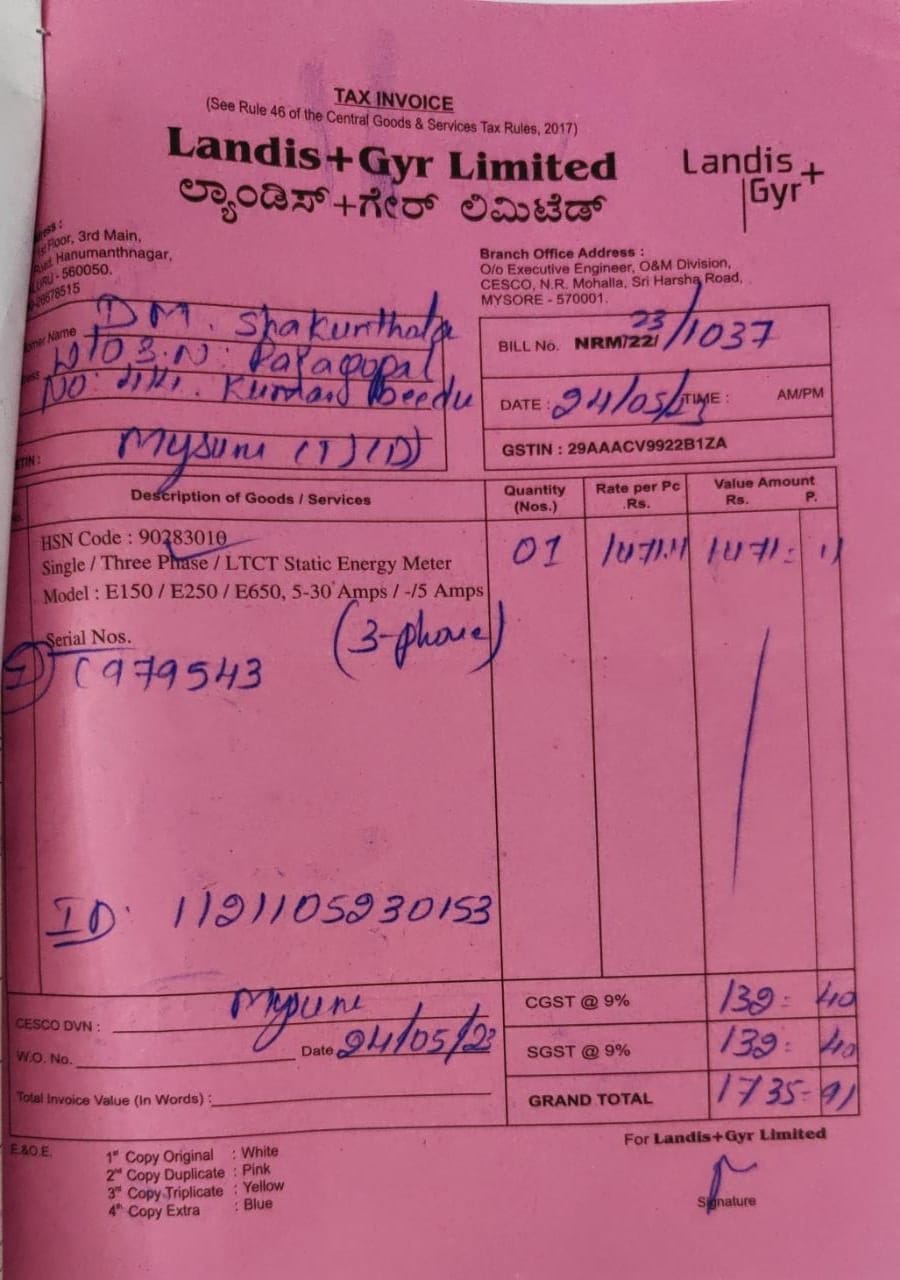 TAX INVOICE
(See Rule 46 of the Central Goods & Services Tax Rules, 2017)
Landis+Gyr Limited
ಲ್ಯಾಂಡಿಸ್+ಗೇರ್ ಲಿಮಿಟೆಡ್
Landis+
Gyr
Floor, 3rd Main,
Hanumanthnagar,
- 560050.
Branch Office Address :
O/o Executive Engineer, O&M Division,
CESCO, N.R. Mohalla, Sri Harsha Road,
MYSORE - 570001.
Name DM. Shakunthala
W/O
No: Kumar Beedu
BILL No. NRM/22/ 23/1037
DATE : 24/05/23 TIME : AM/PM
GSTIN : 29AAACV9922B1ZA
Description of Goods / Services
Quantity (Nos.)
Rate per Pc Rs.
Value Amount Rs. P.
HSN Code : 90283010
Single / Three Phase / LTCT Static Energy Meter
Model : E150 / E250 / E650, 5-30 Amps / -/5 Amps
01 1471.11 1471 = 11
Serial Nos. (3-phase)
1) C979543
ID: 1121105230153
CESCO DVN :
W.O. No. Date 24/05/23
Total Invoice Value (In Words) :
CGST @ 9% 132 = 40
SGST @ 9% 132 = 40
GRAND TOTAL 1735 = 91
E&O.E.
1st Copy Original : White
2nd Copy Duplicate : Pink
3rd Copy Triplicate : Yellow
4th Copy Extra : Blue
For Landis+Gyr Limited
Signature